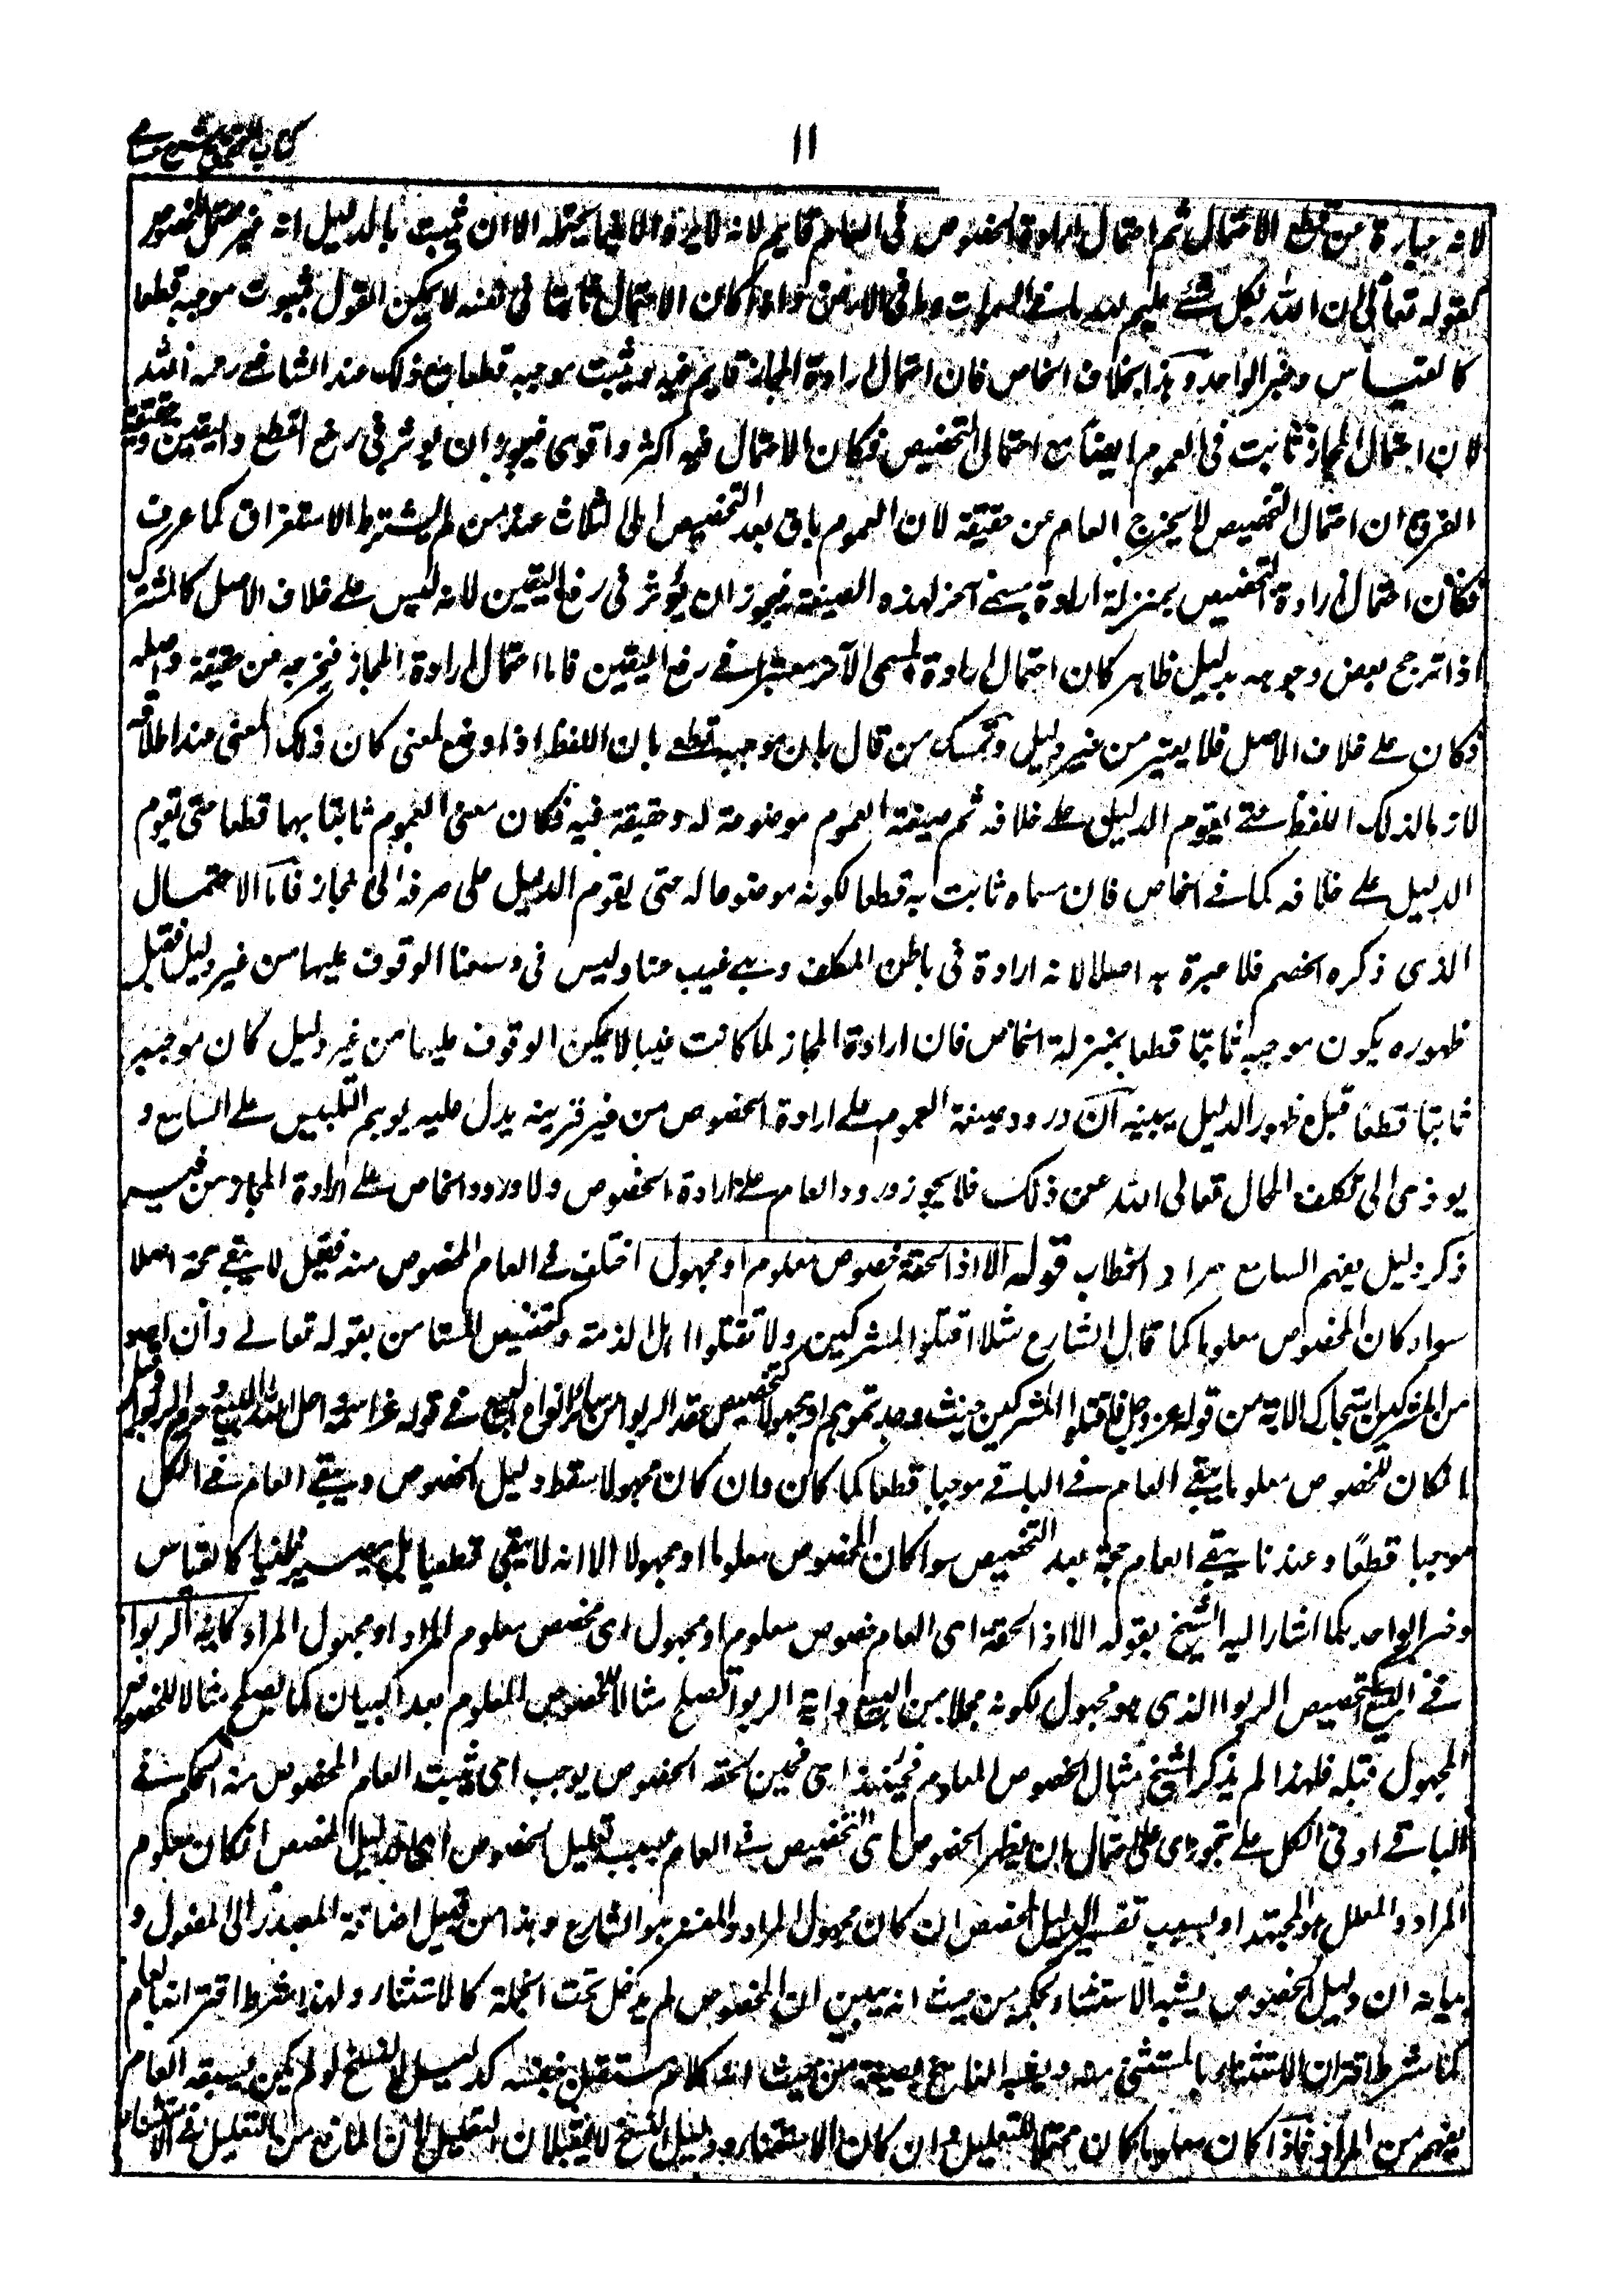 ۱۱
كتاب التحقيق شرح حسامى
لانه عبارة عن قطع الاحتمال ثم احتمال ارادة الخصوص فى العام قايم لانه لا يرد الا فيما يحتمله الا ان يثبت بالدليل انه غير محتمل للخصوص
كقوله تعالى ان الله بكل شئ عليم لله ما فى السموات وما فى الارض واذا كان الاحتمال ثابتا فى نفسه لا يمكن القول بثبوت موجبه قطعا
كالقياس وخبر الواحد وهذا بخلاف الخاص فان احتمال ارادة المجاز قايم فيه ويثبت موجبه قطعا مع ذلك عند الشافعى رحمه الله
لان احتمال المجاز ثابت فى العموم ايضا مع احتمال التخصيص فكان الاحتمال فيه اكثر واقوى فيجوز ان يوثر فى رفع القطع واليقين وتحقيق
الفرق ان احتمال التخصيص لا يخرج العام عن حقيقة لان العموم باق بعد التخصيص الى الثلاث عند من لم يشترط الاستغراق كما عرف
فكان احتمال ارادة التخصيص بمنزلة ارادة مسمى آخر لهذه الصيغة فيجوز ان يؤثر فى رفع اليقين لانه ليس على خلاف الاصل كالمشترك
اذا ترجح بعض وجوهه بدليل ظاهر كان احتمال ارادة المسمى الآخر معتبرا فى رفع اليقين فاما احتمال ارادة المجاز فيخرجه من حقيقة واصله
فكان على خلاف الاصل فلا يعتبر من غير دليل وتمسك من قال بان موجبه قطعى بان اللفظ اذا وضع لمعنى كان ذلك المعنى عند اطلاقه
لازما لذلك اللفظ حتى يقوم الدليل على خلافه ثم صيغة العموم موضوعة له وحقيقة فيه فكان معنى العموم ثابتا بها قطعا حتى يقوم
الدليل على خلافه كما فى الخاص فان مسماه ثابت به قطعا لكونه موضوعا له حتى يقوم الدليل على صرفه الى المجاز فاما الاحتمال
الذى ذكره الخصم فلا عبرة به اصلا لانه ارادة فى باطن المكلف وهى غيب عنا وليس فى وسعنا الوقوف عليها من غير دليل فقبل
ظهوره يكون موجبه ثابتا قطعا بمنزلة الخاص فان ارادة المجاز لما كانت غيبا لا يمكن الوقوف عليها من غير دليل كان موجبه
ثابتا قطعا قبل ظهور الدليل يبينه ان ورود صيغة العموم على ارادة الخصوص من غير قرينة يدل عليه يوهم التلبيس على السامع و
يودى الى تكلف المحال تعالى الله عن ذلك فلا يجوز ورود العام على ارادة الخصوص ولا ورود الخاص على ارادة المجاز من غير
ذكر دليل يفهم السامع مراد الخطاب قوله الا اذا لحقه خصوص معلوم او مجهول اختلف فى العام المخصوص منه فقيل لا يبقى حجة اصلا
سواء كان المخصوص معلوما كما قال الشارع مثلا اقتلوا المشركين ولا تقتلوا اهل الذمة وكتخصيص المستامن بقوله تعالى وان احد
من المشركين استجارك الاية من قوله عز وجل فاقتلوا المشركين حيث وجدتموهم او مجهولا كتخصيص عقد الربوا من سائر انواع البيع فى قوله عز اسمه احل الله البيع وحرم الربوا وقيل
ان كان المخصوص معلوما يبقى العام فى الباقى موجبا قطعا كما كان وان كان مجهولا سقط دليل الخصوص ويبقى العام فى الكل
موجبا قطعًا وعندنا يبقى العام حجة بعد التخصيص سواء كان المخصوص معلوما او مجهولا الا انه لا يبقى قطعيا بل يصير ظنيا كالقياس
وخبر الواحد كما اشار اليه الشيخ بقوله الا اذا لحقه اى العام خصوص معلوم او مجهول اى مخصص معلوم المراد او مجهول المراد كاية الربوا
فى البيع لتخصيص الربوا الذى هو مجهول لكونه مجملا من البيع واية الربوا تصلح مثالا للخصوص المعلوم بعد البيان كما يصلح مثالا للخصوص
المجهول قبله فلهذا لم يذكر الشيخ مثال الخصوص المعلوم فحينئذ اى فحين لحقه الخصوص يوجب اى يثبت العام المخصوص منه الحكم فى
الباقى او فى الكل على تجوز اى على احتمال ان يظهر الخصوص اى التخصيص فى العام بسبب تعليل الخصوص اى دليل المخصص ان كان معلوم
المراد والمعلل هو المجتهد او بسبب تفسير الدليل المخصص ان كان مجهول المراد والمفسر هو الشارع وهذا من قبيل اضافة المصدر الى المفعول و
بيانه ان دليل الخصوص يشبه الاستثناء بحكمه من حيث انه يبين ان المخصوص لم يدخل تحت الجملة كالاستثناء ولهذا شرط اقترانه بالعام
كما شرط اقتران الاستثناء بالمستثنى منه ويشبه الناسخ بصيغته من حيث انه كلام مستقل بنفسه كدليل النسخ لو لم يكن يسبقه العام
يفهم من المراد فاذا كان معلوما كان محتملا للتعليل وان كان الاستثناء ودليل النسخ لا يقبلان التعليل لان المانع من التعليل فى الاستثناء